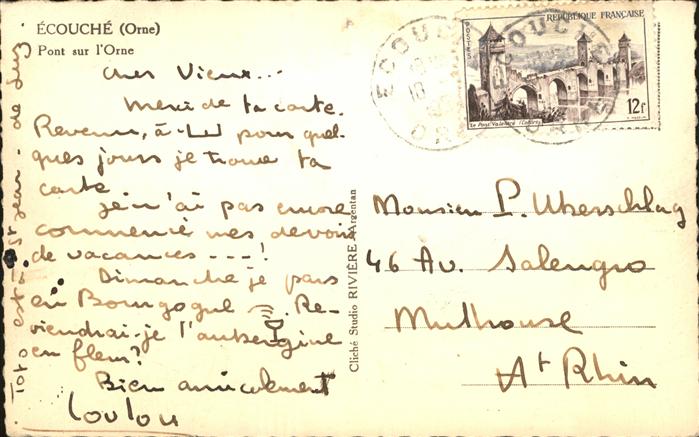 ÉCOUCHÉ (Orne)
Pont sur l'Orne
Cher Vieux...
Merci de ta carte.
Revenu, à pour quel-
ques jours je trouve ta
carte
je n'ai pas encore
commencé mes devoirs
de vacances ---!
Dimanche je pars
en Bourgogne. Re-
viendrai-je l'aubergine
en fleur?
Bien amicalement
Loulou
Toto est à St Jean-de-Luz
Cliché Studio RIVIÈRE Argentan
ECOUCHE
ORNE
POSTES
RÉPUBLIQUE FRANÇAISE
12f
Le Pont Valentré (Cahors)
Monsieur P. Uberschlag
46 Av. Salengro
Mulhouse
Ht Rhin